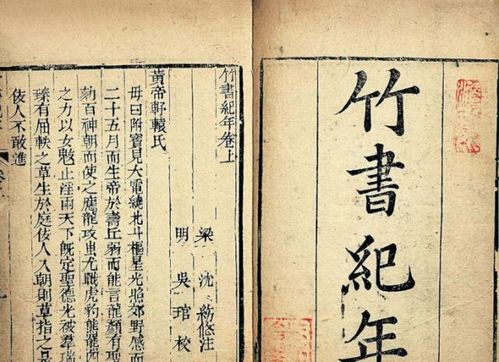 竹書紀年
竹書紀年卷上
梁 沈約附注
明 吳琯校
黃帝軒轅氏
母曰附寶見大電繞北斗樞星光照郊野感而
二十五月而生帝於壽丘弱而能言龍顏有聖
劾百神朝而使之應龍攻蚩尤戰虎豹熊羆
之力以女魃止淫雨天下既定聖德光被羣瑞
臻有屈軼之草生於庭佞人入朝則草指之
佞人不敢進